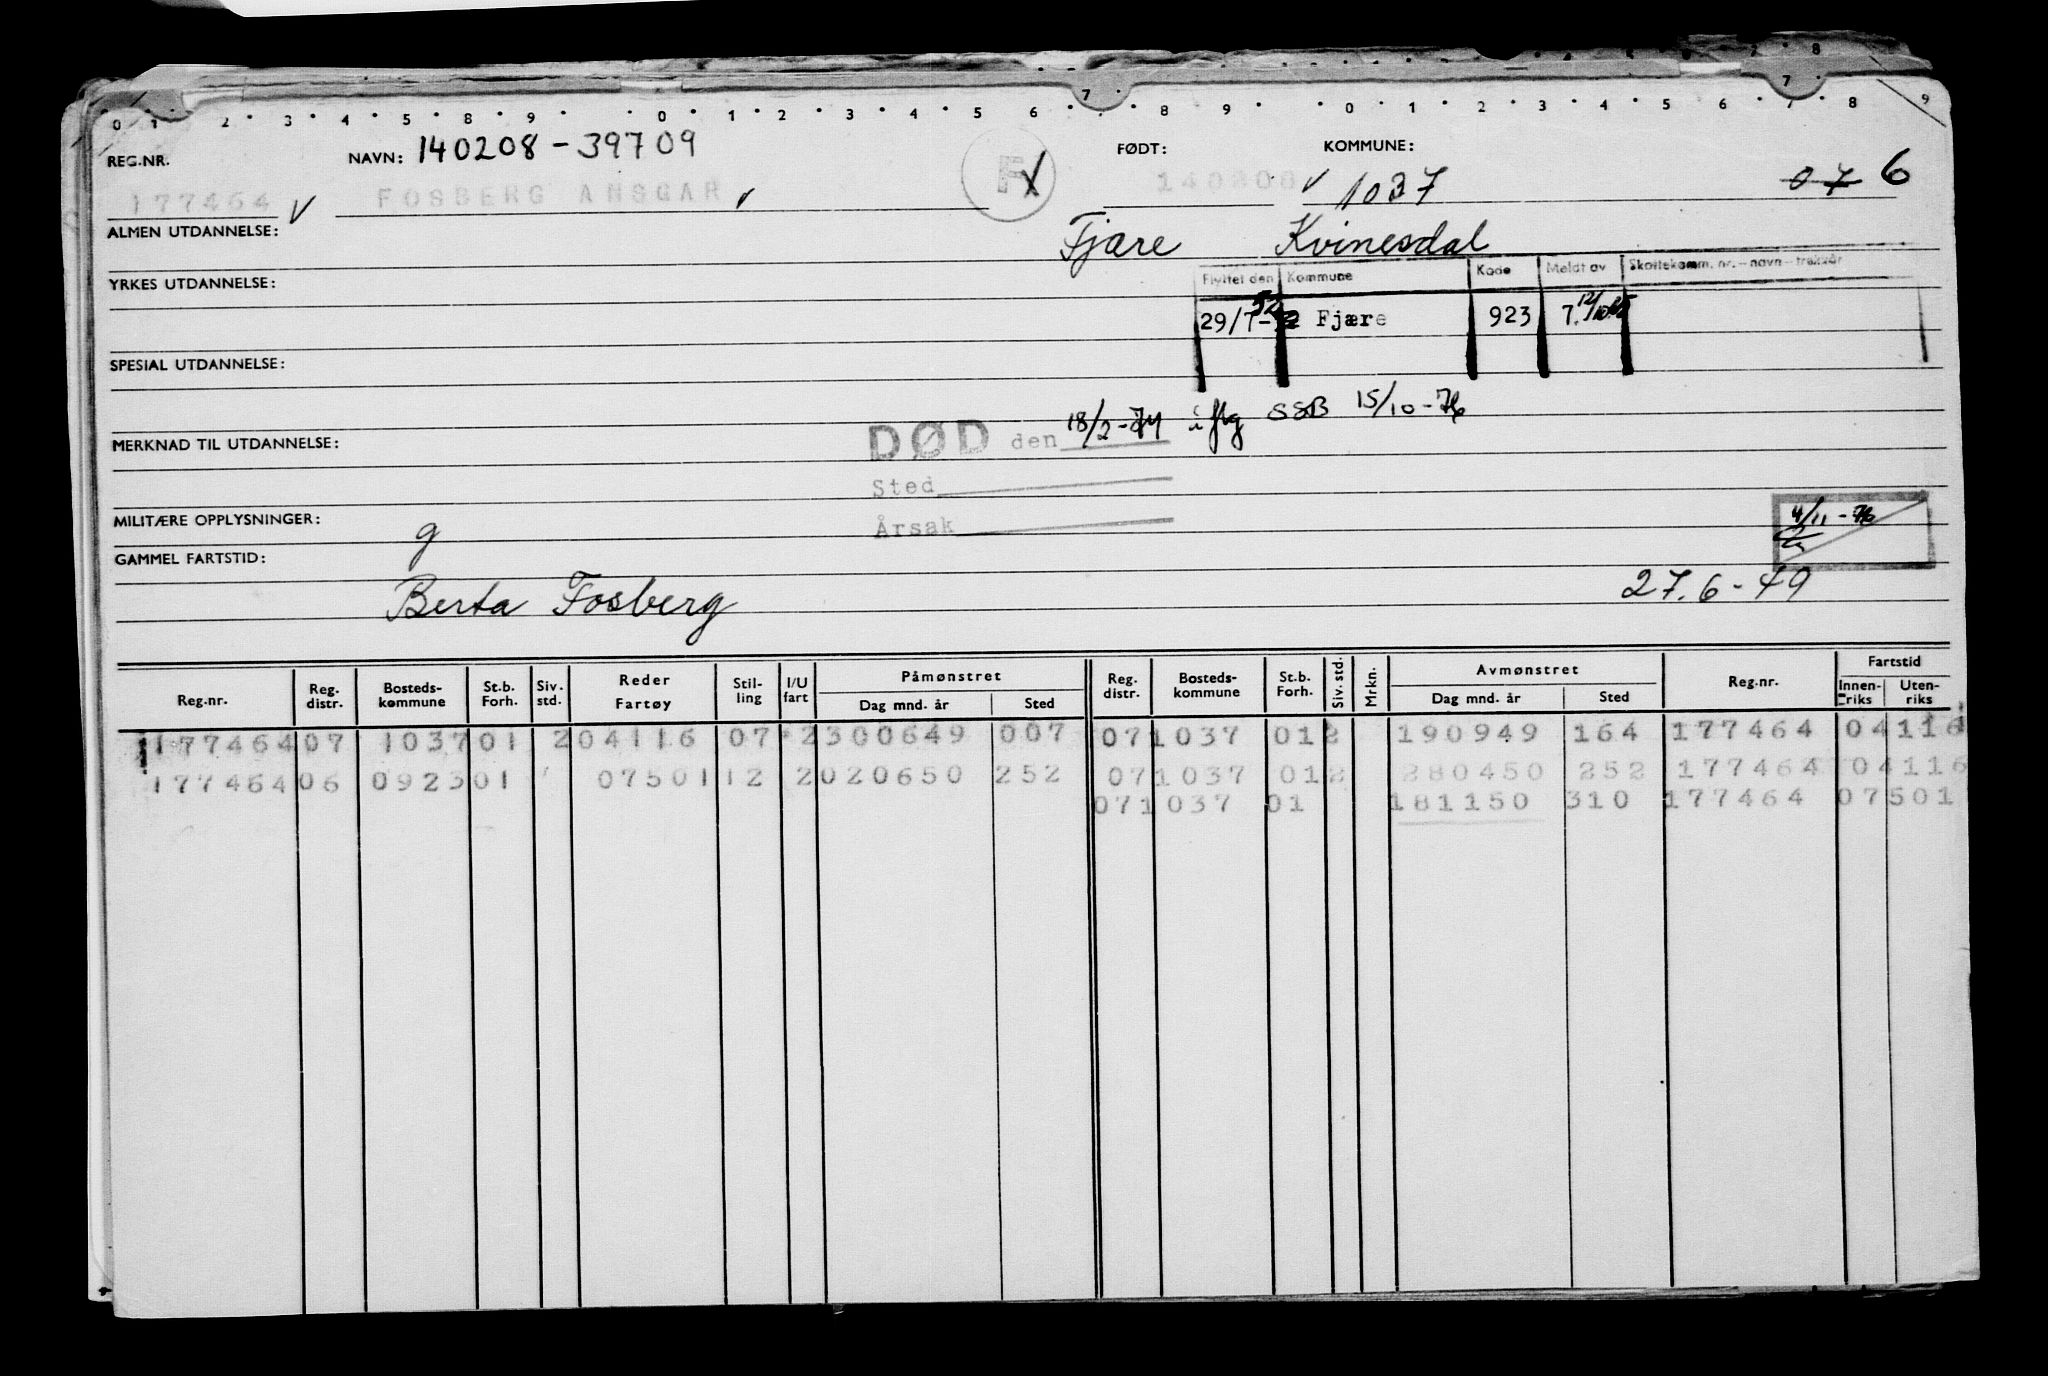 0 1 2 3 4 5 6 8 9 0 1 2 3 4 5 6 7 8 9 0 1 2 3 4 5 6 7 8 9
REG.NR. NAVN: 140208-39709 FØDT: KOMMUNE:
177464 FOSBERG ANSGAR F 140208 1037 07 6
ALMEN UTDANNELSE: Fjære Kvinesdal
Flyttet den Kommune Kode Meldt av Skattekomm. nr. – navn – trekkår
YRKES UTDANNELSE:
29/7-52 Fjære 923 7.
SPESIAL UTDANNELSE:
DØD den 18/2-74 iflg SSB 15/10-76
MERKNAD TIL UTDANNELSE:
Sted
MILITÆRE OPPLYSNINGER: g
Årsak
4/11-76
GAMMEL FARTSTID:
Berta Fosberg 27.6-49
Reg.nr. Reg. distr. Bosteds-kommune St.b. Forh. Siv. std. Reder Fartøy Stil-ling I/U fart Påmønstret Dag mnd. år Sted Reg. distr. Bosteds-kommune St.b. Forh. Siv. std. Mrkn. Avmønstret Dag mnd. år Sted Reg.nr. Fartstid Innen-riks Uten-riks
177464 07 1037 01 2 04116 07 2 300649 007 07 1037 01 2 190949 164 177464 04116
177464 06 0923 01 07501 12 2 020650 252 07 1037 01 2 280450 252 177464 04116
07 1037 01 181150 310 177464 07501